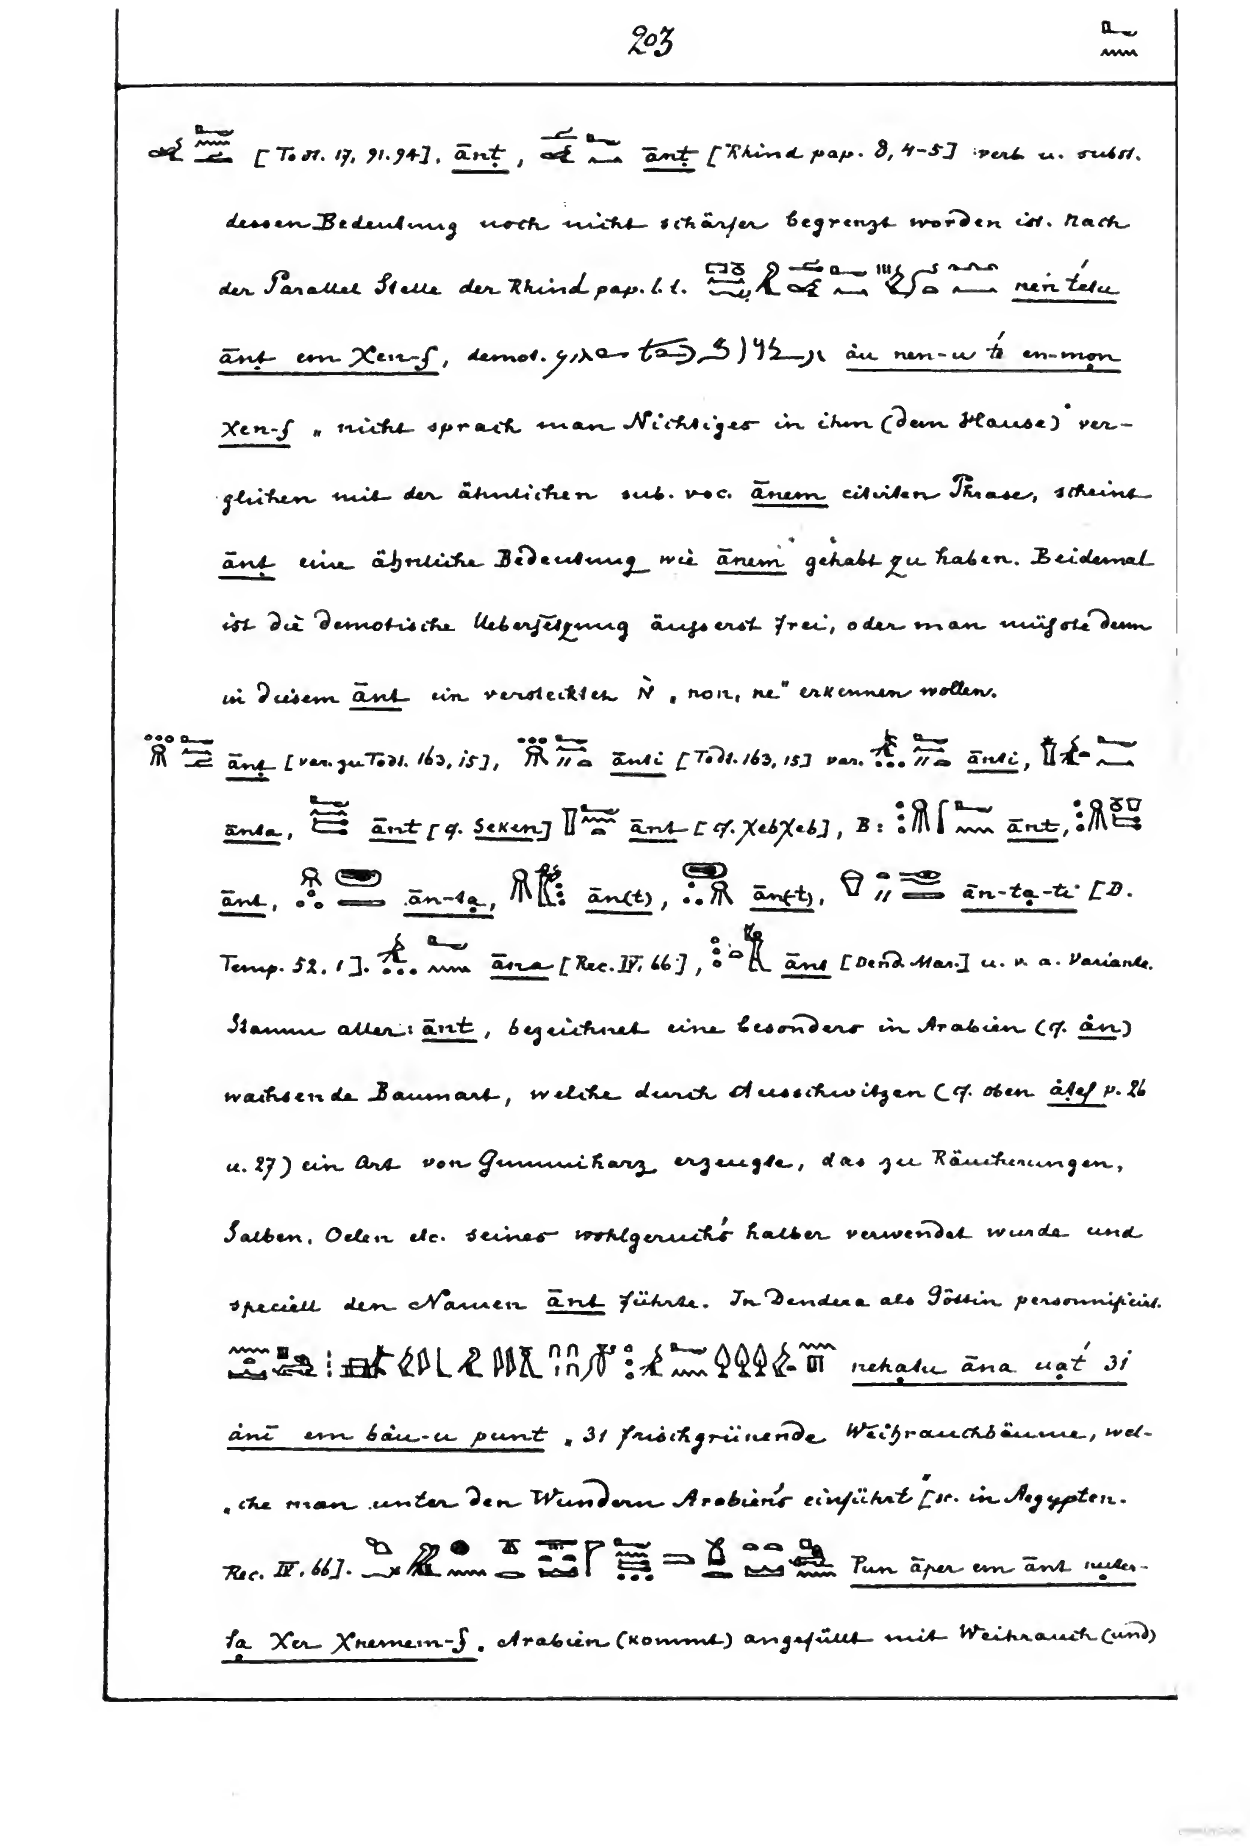 203
[Todt. 17, 91.94]. ānṭ, ānṭ [Rhind pap. 8, 4-5] verb u. subst.
dessen Bedeutung noch nicht schärfer begrenzt worden ist. Nach
der Parallel Stelle der Rhind pap. l.l. nen tetu
ānṭ em χen-f, demot. àu nen-u té en-mon
χen-f „nicht sprach man Nichtiges in ihm (dem Hause)" ver-
glichen mit der ähnlichen sub. voc. ānem citirten Phrase, scheint
ānṭ eine ähnliche Bedeutung wie ānem gehabt zu haben. Beidemal
ist die demotische Uebersetzung äusserst frei, oder man müsste denn
in diesem ānt ein verstecktes Ǹ „non, ne" erkennen wollen.
ānṭ [var. zu Todt. 163, 15], ānti [Todt. 163, 15] var. ānti,
ānta, ānt [cf. Seken] ānt [cf. χebχeb], B: ānt,
ānt, ān-ta, ān(t), ān(t), ān-ta-ti [D.
Temp. 52, 1]. āna [Rec. IV, 66], ānt [Dend. Mar.] u. v. a. Variante.
Stamm aller: ānt, bezeichnet eine besonders in Arabien (cf. ån)
wachsende Baumart, welche durch Ausschwitzen (cf. oben åtef p. 26
u. 27) ein Art von Gummiharz erzeugte, das zu Räucherungen,
Salben, Oelen etc. seines wohlgeruchs halber verwendet wurde und
speciell den Namen ānt führte. In Dendera als Göttin personnificirt.
nehatu āna uat́ 31
ànī em bàu-u punt „31 frischgrünende Weihrauchbäume, wel-
„che man unter den Wundern Arabiens einführt" [sc. in Aegypten.
Rec. IV, 66]. Pun āper em ānt nuter-
ta χer χnemem-f „Arabien (kommt) angefüllt mit Weihrauch (und)